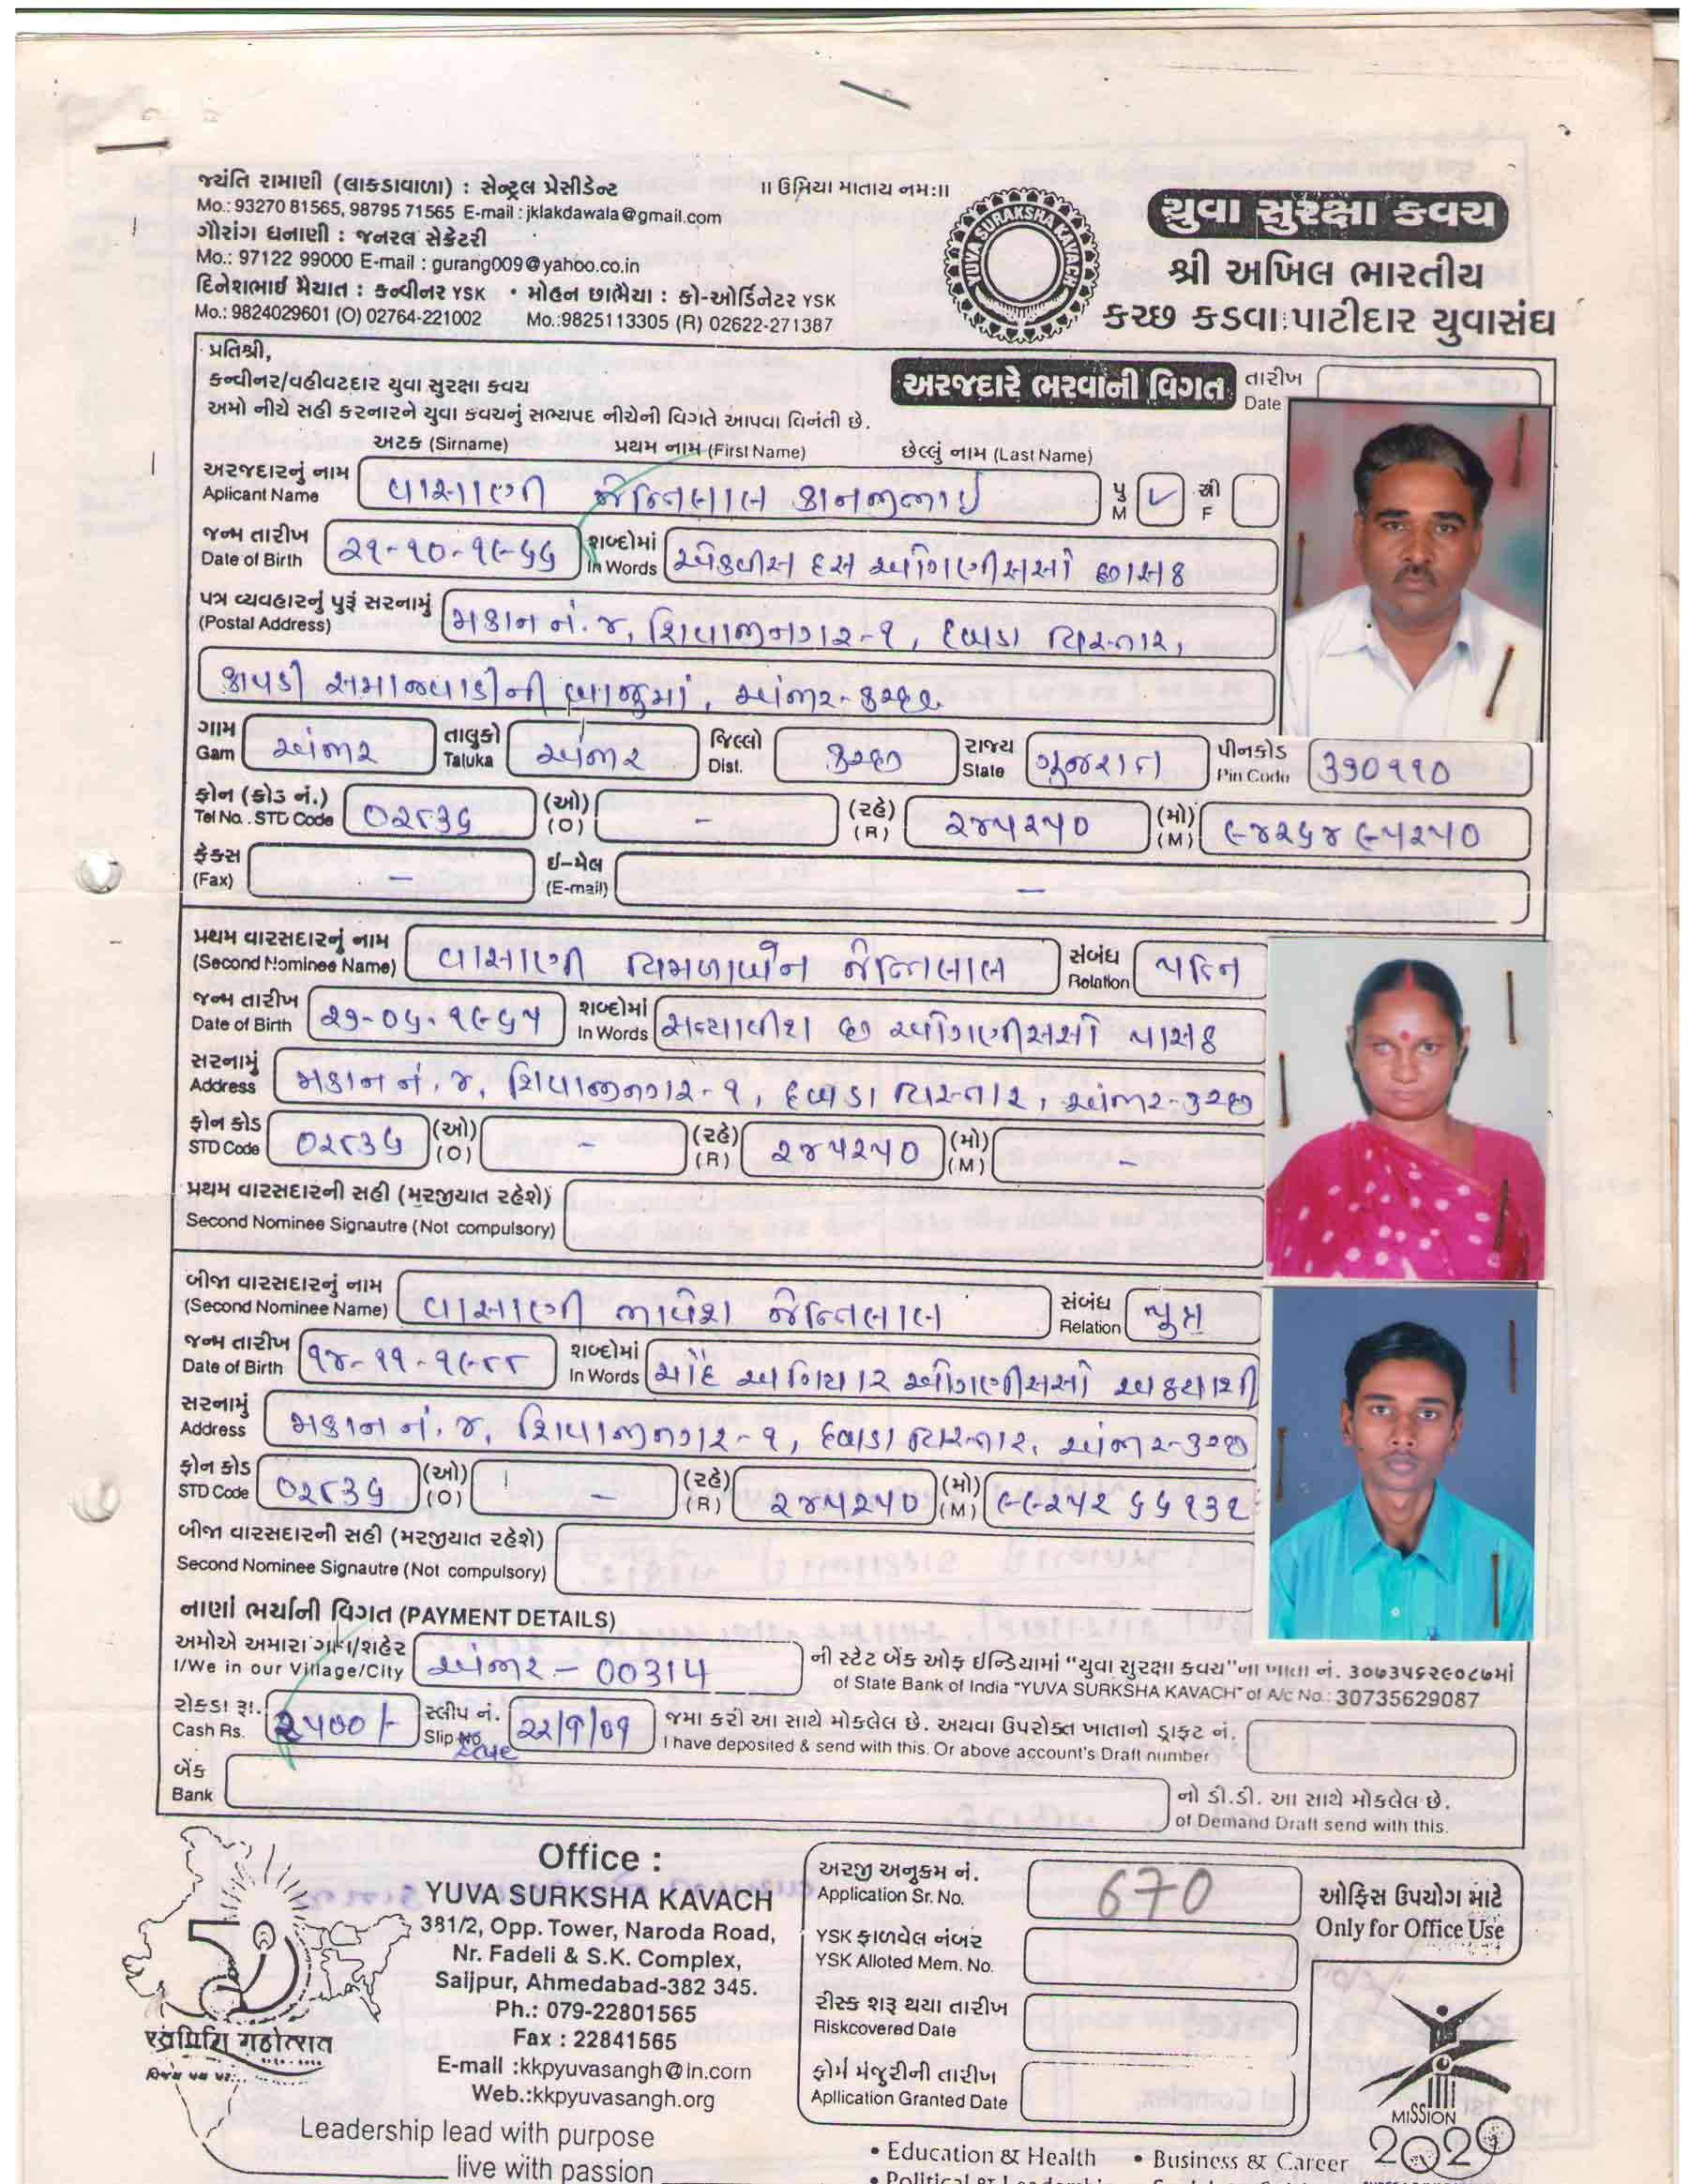 જયંતિ રામાણી (લાકડાવાળા) : સેન્ટ્રલ પ્રેસીડેન્ટ
Mo.: 93270 81565, 98795 71565 E-mail : jklakdawala@gmail.com
ગૌરાંગ ધનાણી : જનરલ સેક્રેટરી
Mo.: 97122 99000 E-mail : gurang009@yahoo.co.in
દિનેશભાઈ મૈયાત : કન્વીનર YSK • મોહન છાભૈયા : કો-ઓર્ડિનેટર YSK
Mo.: 9824029601 (O) 02764-221002 Mo.:9825113305 (R) 02622-271387
॥ ઉમિયા માતાય નમઃ॥
YUVA SURAKSHA KAVACH
યુવા સુરક્ષા કવચ
શ્રી અખિલ ભારતીય
કચ્છ કડવા પાટીદાર યુવાસંઘ
પ્રતિશ્રી,
કન્વીનર/વહીવટદાર યુવા સુરક્ષા કવચ
અમો નીચે સહી કરનારને યુવા કવચનું સભ્યપદ નીચેની વિગતે આપવા વિનંતી છે.
અરજદારે ભરવાની વિગત
તારીખ
Date
અટક (Sirname) પ્રથમ નામ (First Name) છેલ્લું નામ (Last Name)
અરજદારનું નામ
Aplicant Name વાસાણી જેન્તિલાલ કાનજીભાઈ પુ M ✓ સ્ત્રી F
જન્મ તારીખ
Date of Birth ૨૧-૧૦-૧૯૬૬ શબ્દોમાં In Words એકવીસ દસ ઓગણીસસો છાસઠ
પત્ર વ્યવહારનું પુરૂં સરનામું
(Postal Address) મકાન નં. ૪, શિવાજીનગર-૧, દબડા વિસ્તાર,
કાપડી સમાજવાડીની બાજુમાં, અંજાર-કચ્છ.
ગામ Gam અંજાર તાલુકો Taluka અંજાર જિલ્લો Dist. કચ્છ રાજ્ય State ગુજરાત પીનકોડ Pin Code ૩૭૦૧૧૦
ફોન (કોડ નં.)
Tel No. STD Code ૦૨૮૩૬ (ઓ) (O) - (રહે) (R) ૨૪૫૨૫૦ (મો) (M) ૯૪૨૬૪ ૯૫૨૫૦
ફેક્સ (Fax) - ઈ-મેલ (E-mail) -
પ્રથમ વારસદારનું નામ
(Second Nominee Name) વાસાણી વિમળાબેન જેન્તિલાલ સંબંધ Relation પત્નિ
જન્મ તારીખ
Date of Birth ૨૭-૦૬-૧૯૬૫ શબ્દોમાં In Words સત્યાવીશ છ ઓગણીસસો પાસઠ
સરનામું
Address મકાન નં. ૪, શિવાજીનગર-૧, દબડા વિસ્તાર, અંજાર-કચ્છ
ફોન કોડ
STD Code ૦૨૮૩૬ (ઓ) (O) - (રહે) (R) ૨૪૫૨૫૦ (મો) (M) -
પ્રથમ વારસદારની સહી (મરજીયાત રહેશે)
Second Nominee Signautre (Not compulsory)
બીજા વારસદારનું નામ
(Second Nominee Name) વાસાણી ભાવેશ જેન્તિલાલ સંબંધ Relation પુત્ર
જન્મ તારીખ
Date of Birth ૧૪-૧૧-૧૯૮૮ શબ્દોમાં In Words ચૌદ અગિયાર ઓગણીસસો અઠયાશી
સરનામું
Address મકાન નં. ૪, શિવાજીનગર-૧, દબડા વિસ્તાર, અંજાર-કચ્છ
ફોન કોડ
STD Code ૦૨૮૩૬ (ઓ) (O) - (રહે) (R) ૨૪૫૨૫૦ (મો) (M) ૯૯૨૫૨ ૬૬૧૩૧
બીજા વારસદારની સહી (મરજીયાત રહેશે)
Second Nominee Signautre (Not compulsory)
નાણાં ભર્યાની વિગત (PAYMENT DETAILS)
અમોએ અમારા ગામ/શહેર
I/We in our Village/City અંજાર - 00314
ની સ્ટેટ બેંક ઓફ ઈન્ડિયામાં "યુવા સુરક્ષા કવચ"ના ખાતા નં. ૩૦૭૩૫૬૨૯૦૮૭માં
of State Bank of India "YUVA SURKSHA KAVACH" of A/c No.: 30735629087
રોકડા રૂા.
Cash Rs. ૨૫૦૦/- સ્લીપ નં. Slip No. Date 22/9/09
જમા કરી આ સાથે મોકલેલ છે. અથવા ઉપરોક્ત ખાતાનો ડ્રાફટ નં.
I have deposited & send with this. Or above account's Draft number
બેંક
Bank
નો ડી.ડી. આ સાથે મોકલેલ છે.
of Demand Draft send with this.
Office :
YUVA SURKSHA KAVACH
381/2, Opp. Tower, Naroda Road,
Nr. Fadeli & S.K. Complex,
Saijpur, Ahmedabad-382 345.
Ph.: 079-22801565
Fax : 22841565
E-mail :kkpyuvasangh@in.com
Web.:kkpyuvasangh.org
Leadership lead with purpose
live with passion
અરજી અનુક્રમ નં.
Application Sr. No. 670
YSK ફાળવેલ નંબર
YSK Alloted Mem. No.
રીસ્ક શરૂ થયા તારીખ
Riskcovered Date
ફોર્મ મંજુરીની તારીખ
Apllication Granted Date
ઓફિસ ઉપયોગ માટે
Only for Office Use
MISSION
2020
• Education & Health • Business & Career